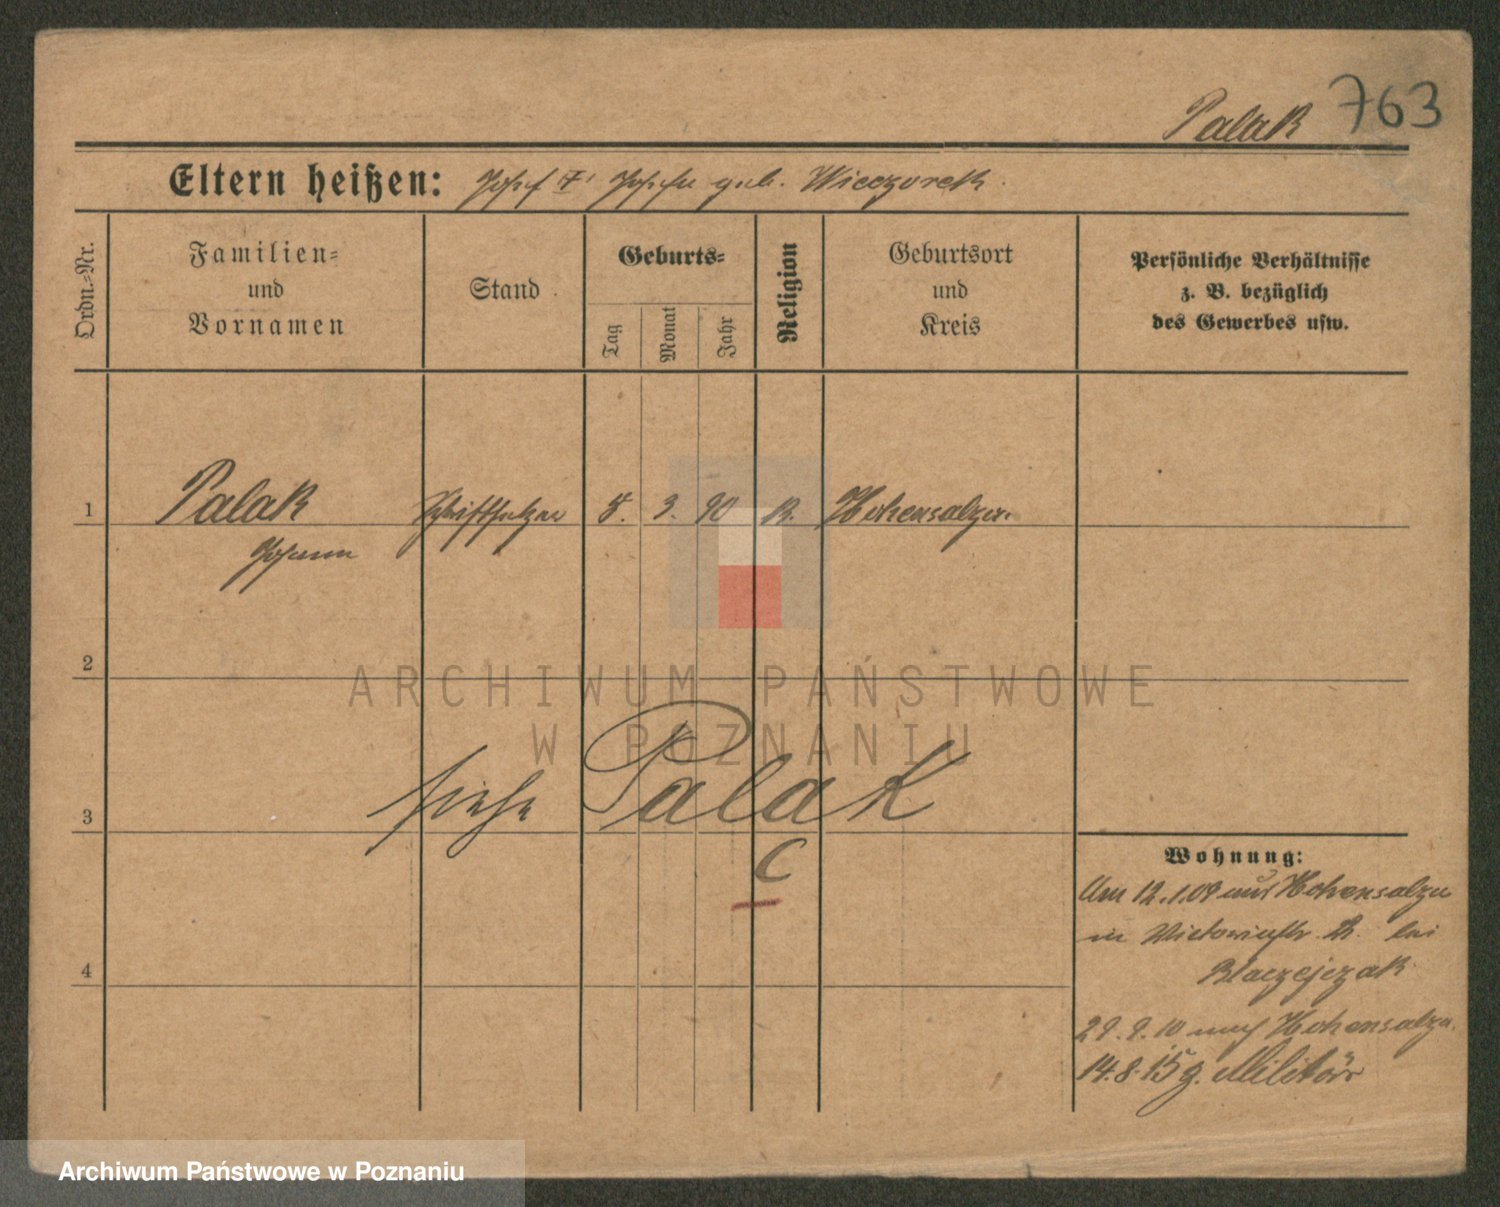 Palak 763
Eltern heißen: Josef u. Josefa geb. Wieczorek.
Ordn.-Nr.
Familien-
und
Vornamen
Stand
Geburts-
Tag
Monat
Jahr
Religion
Geburtsort
und
Kreis
Persönliche Verhältnisse
z. B. bezüglich
des Gewerbes usw.
1 Palak Schriftsetzer 8. 3. 90 K. Hohensalza
Johann
2
ARCHIWUM PAŃSTWOWE
W POZNANIU
3 siehe Palak
C
Wohnung:
Am 12.1.09 aus Hohensalza
in Victoriastr. bei
Blaczejczak
29.9.10 nach Hohensalza.
14.8.15 g. Militär
4
Archiwum Państwowe w Poznaniu